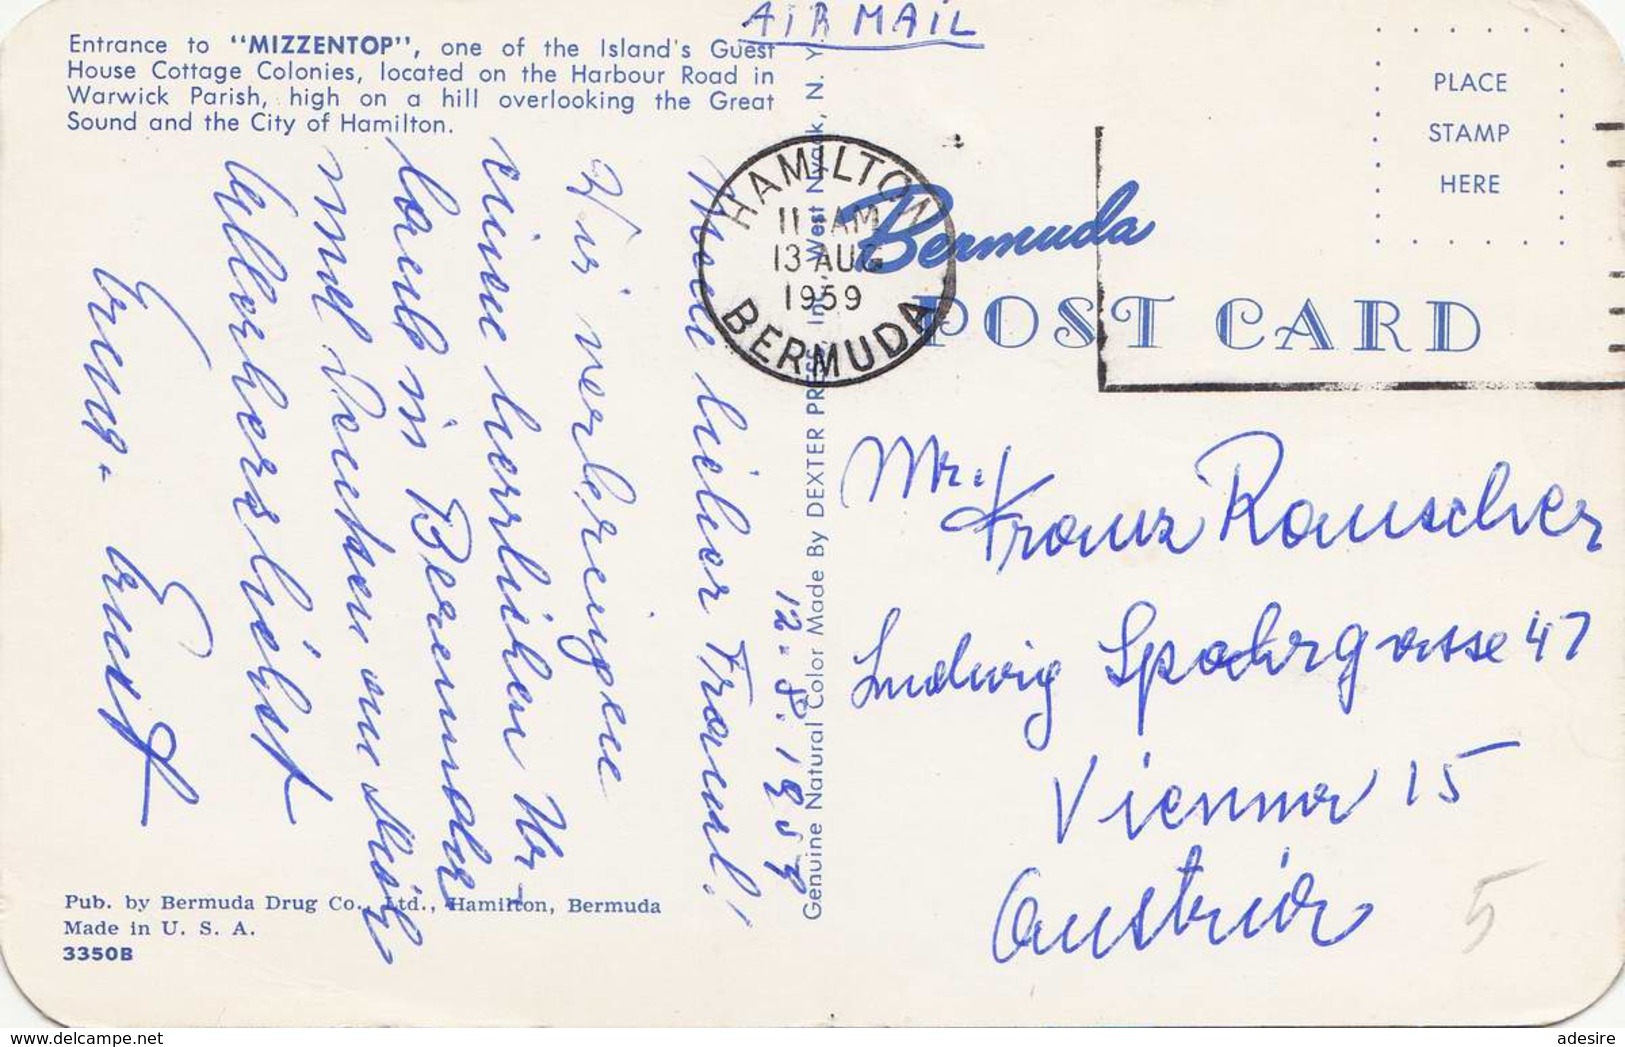 AIR MAIL
Entrance to "MIZZENTOP", one of the Island's Guest
House Cottage Colonies, located on the Harbour Road in
Warwick Parish, high on a hill overlooking the Great
Sound and the City of Hamilton.
12. 8. 1959
Mein lieber Franzl!
Wir verbringen
einen herrlichen Ur-
laub in Bermuda
und denken an dich
Allerherzlichst
Erna - Ernst
Pub. by Bermuda Drug Co., Ltd., Hamilton, Bermuda
Made in U. S. A.
3350B
Genuine Natural Color Made By DEXTER PRESS, Inc., West Nyack, N. Y.
HAMILTON
11 AM
13 AUG
1959
BERMUDA
PLACE
STAMP
HERE
Bermuda
POST CARD
Mr. Franz Rauscher
Ludwig Spohrgasse 47
Vienna 15
Austria
5
adesire